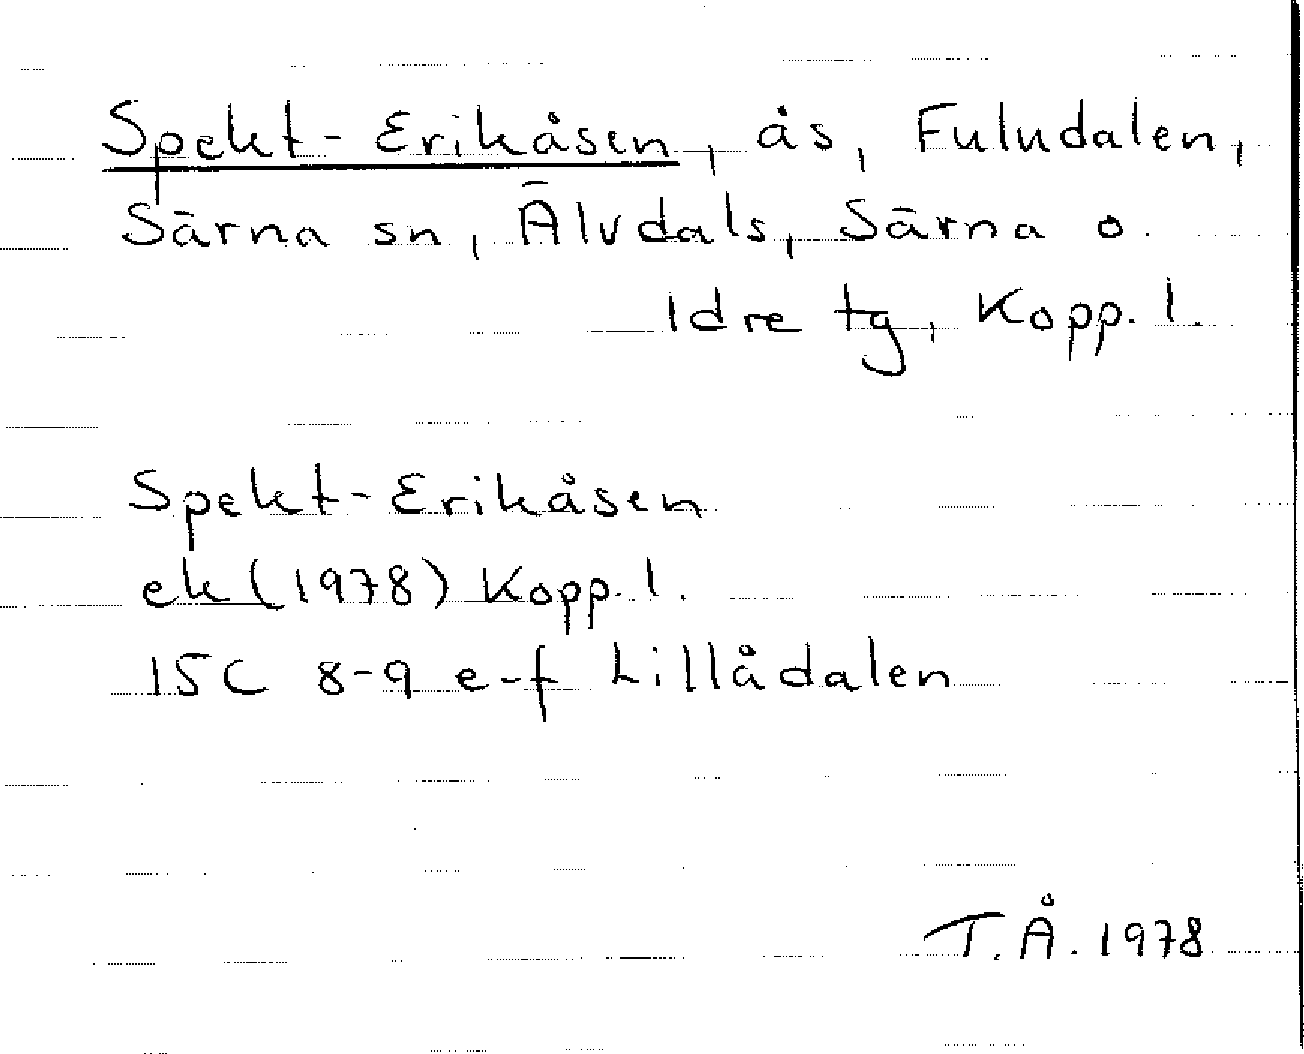 Spekt-Erikåsen, ås, Fuludalen,
Särna sn, Älvdals, Särna o.
Idre tg, Kopp. l.
Spekt-Erikåsen
ek (1978) Kopp. l.
15C 8-9 e-f Lillådalen
T.Å. 1978